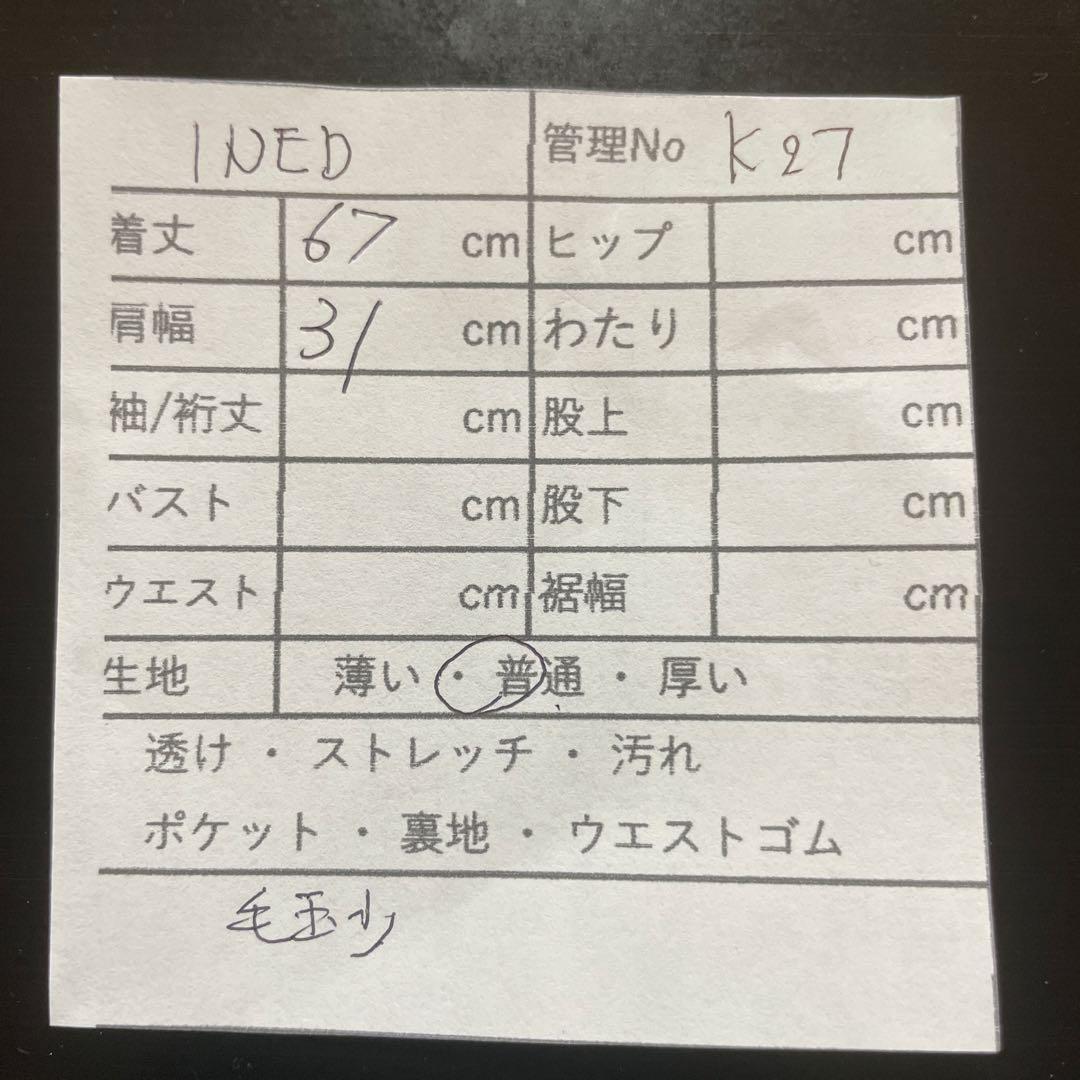 INED 管理No K27
着丈 67 cm ヒップ cm
肩幅 31 cm わたり cm
袖/裄丈 cm 股上 cm
バスト cm 股下 cm
ウエスト cm 裾幅 cm
生地 薄い・普通・厚い
透け・ストレッチ・汚れ
ポケット・裏地・ウエストゴム
毛玉少